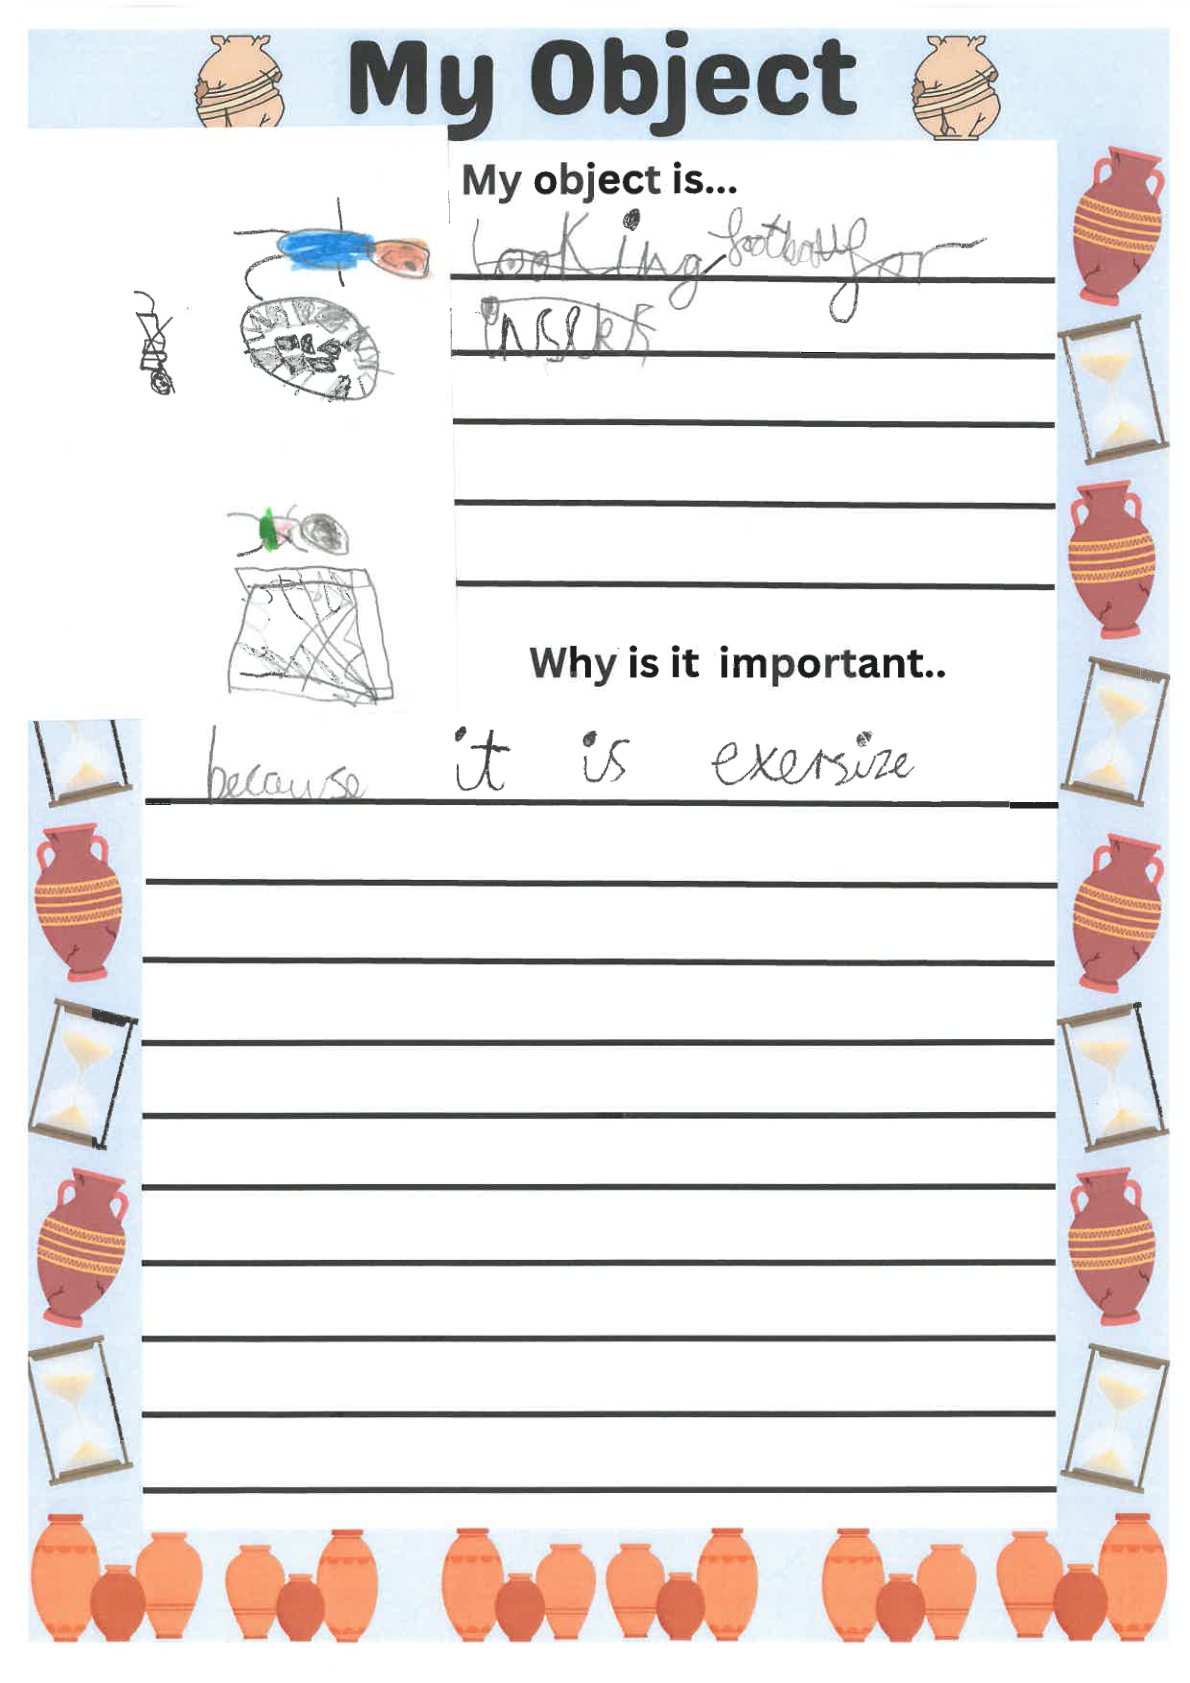 My Object
My object is...
Looking football for
Why is it important..
because it is exersize